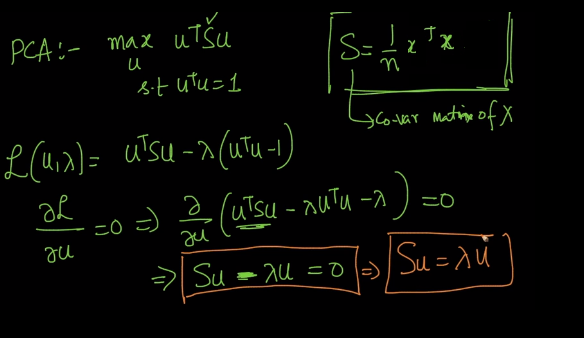 PCA:- max u^T S u
u
s.t u^T u = 1
S = 1/n x^T x
Co-var matrix of X
L(u,λ) = u^T S u - λ(u^T u - 1)
∂L/∂u = 0 ⇒ ∂/∂u (u^T S u - λ u^T u - λ) = 0
⇒ Su - λu = 0 ⇒ Su = λu